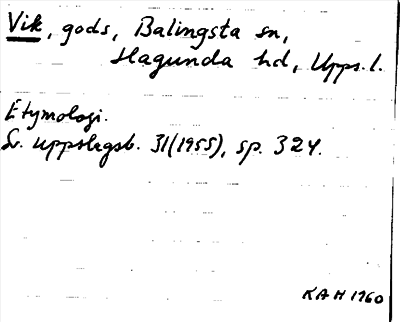 Vik, gods, Balingsta sn,
Hagunda hd, Upps. l.
Etymologi.
Sv. uppslagsb. 31(1955), sp. 324.
KAH 1960